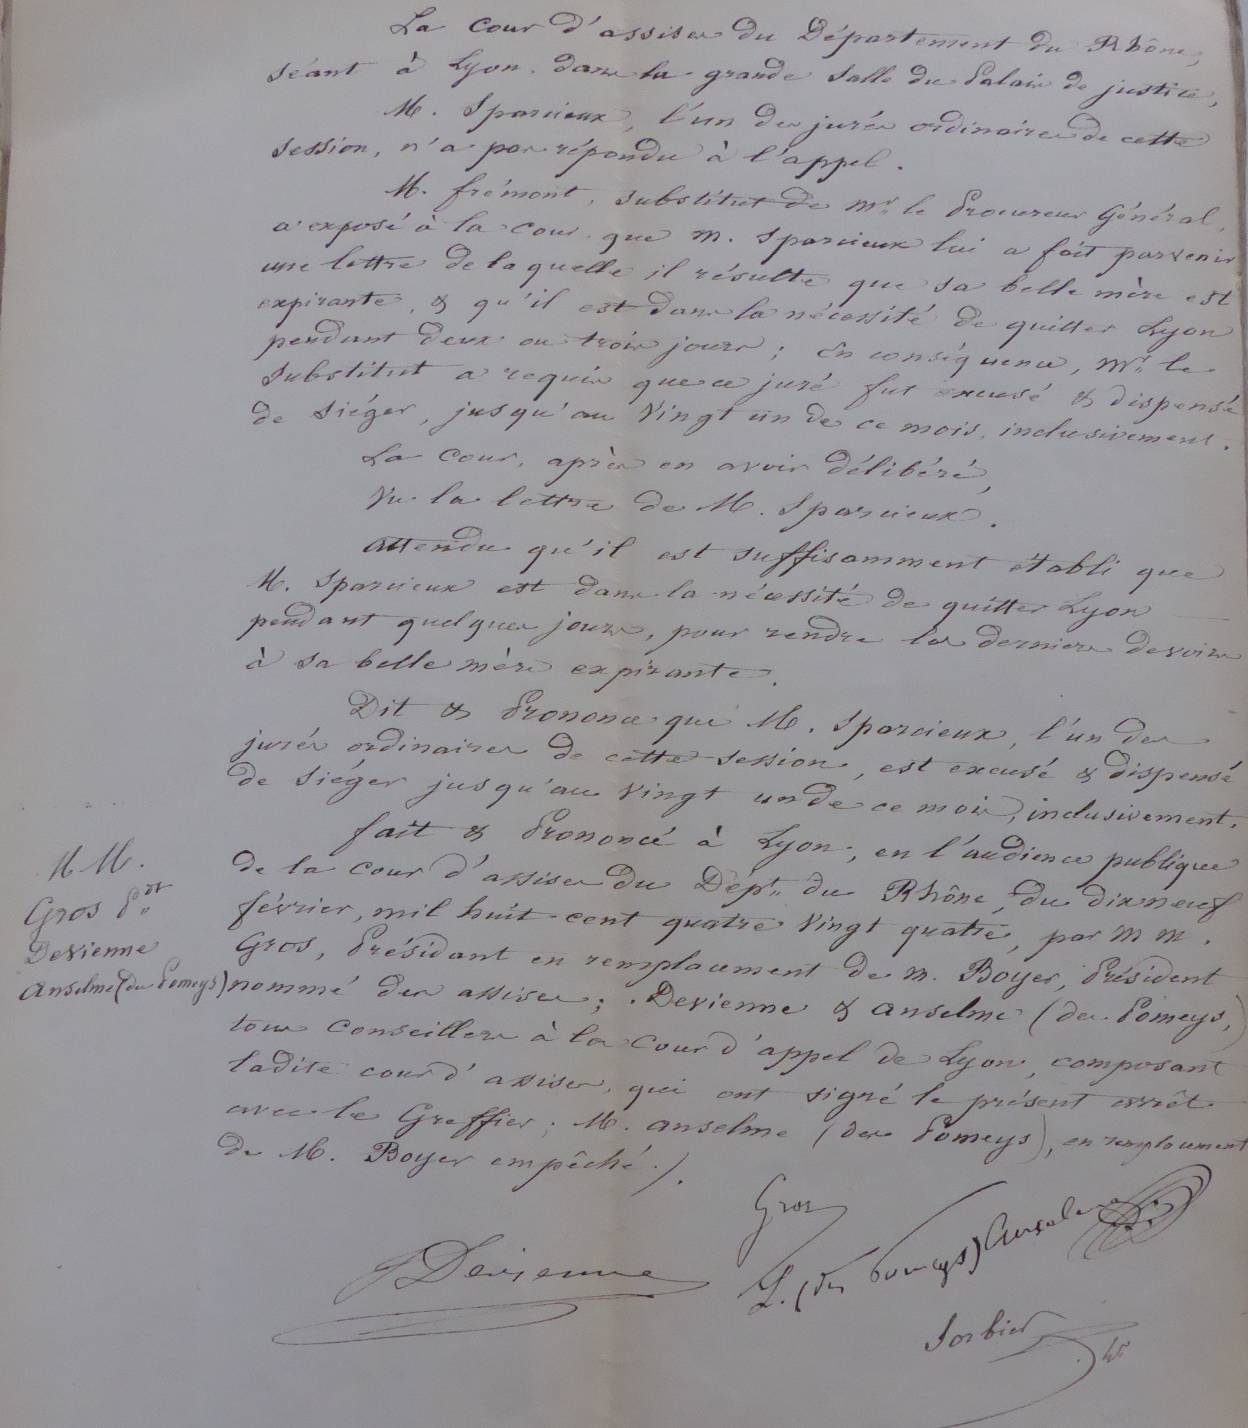 La Cour d'assises du Département du Rhône,
séant à Lyon, dans la grande salle du Palais de justice,
M. Sparcieux, l'un des jurés ordinaires de cette
session, n'a pas répondu à l'appel.
M. frémont, substitut de Mr. le Procureur Général,
a exposé à la Cour que M. Sparcieux lui a fait parvenir
une lettre de laquelle il résulte que sa belle mère est
expirante, & qu'il est dans la nécessité de quitter Lyon
pendant deux ou trois jours ; En conséquence, Mr. le
Substitut a requis que ce juré fut excusé & dispensé
de siéger, jusqu'au Vingt un de ce mois, inclusivement.
La Cour, après en avoir délibéré,
Vu la lettre de M. Sparcieux.
attendu qu'il est suffisamment établi que
M. Sparcieux est dans la nécessité de quitter Lyon
pendant quelques jours, pour rendre les derniers devoirs
à sa belle mère expirante.
Dit & Prononce que M. Sparcieux, l'un des
jurés ordinaires de cette session, est excusé & dispensé
de siéger jusqu'au Vingt un de ce mois, inclusivement.
fait & Prononcé à Lyon, en l'audience publique
de la Cour d'assises du Dépt. du Rhône, du dix neuf
février, mil huit cent quatre Vingt quatre, par M M.
Gros, Présidant en remplacement de M. Boyer, Président
nommé des assises ; Devienne & Anselme (des Pomeys,)
tous Conseillers à la Cour d'appel de Lyon, composant
ladite cour d'assises, qui ont signé le présent arrêt
avec le Greffier ; M. Anselme (des Pomeys), en remplacement
de M. Boyer empêché./.
M M.
Gros Pdt
Devienne
Anselme (des Pomeys)
Gros
Devienne
L. (des Pomeys) Anselme
Sorbier